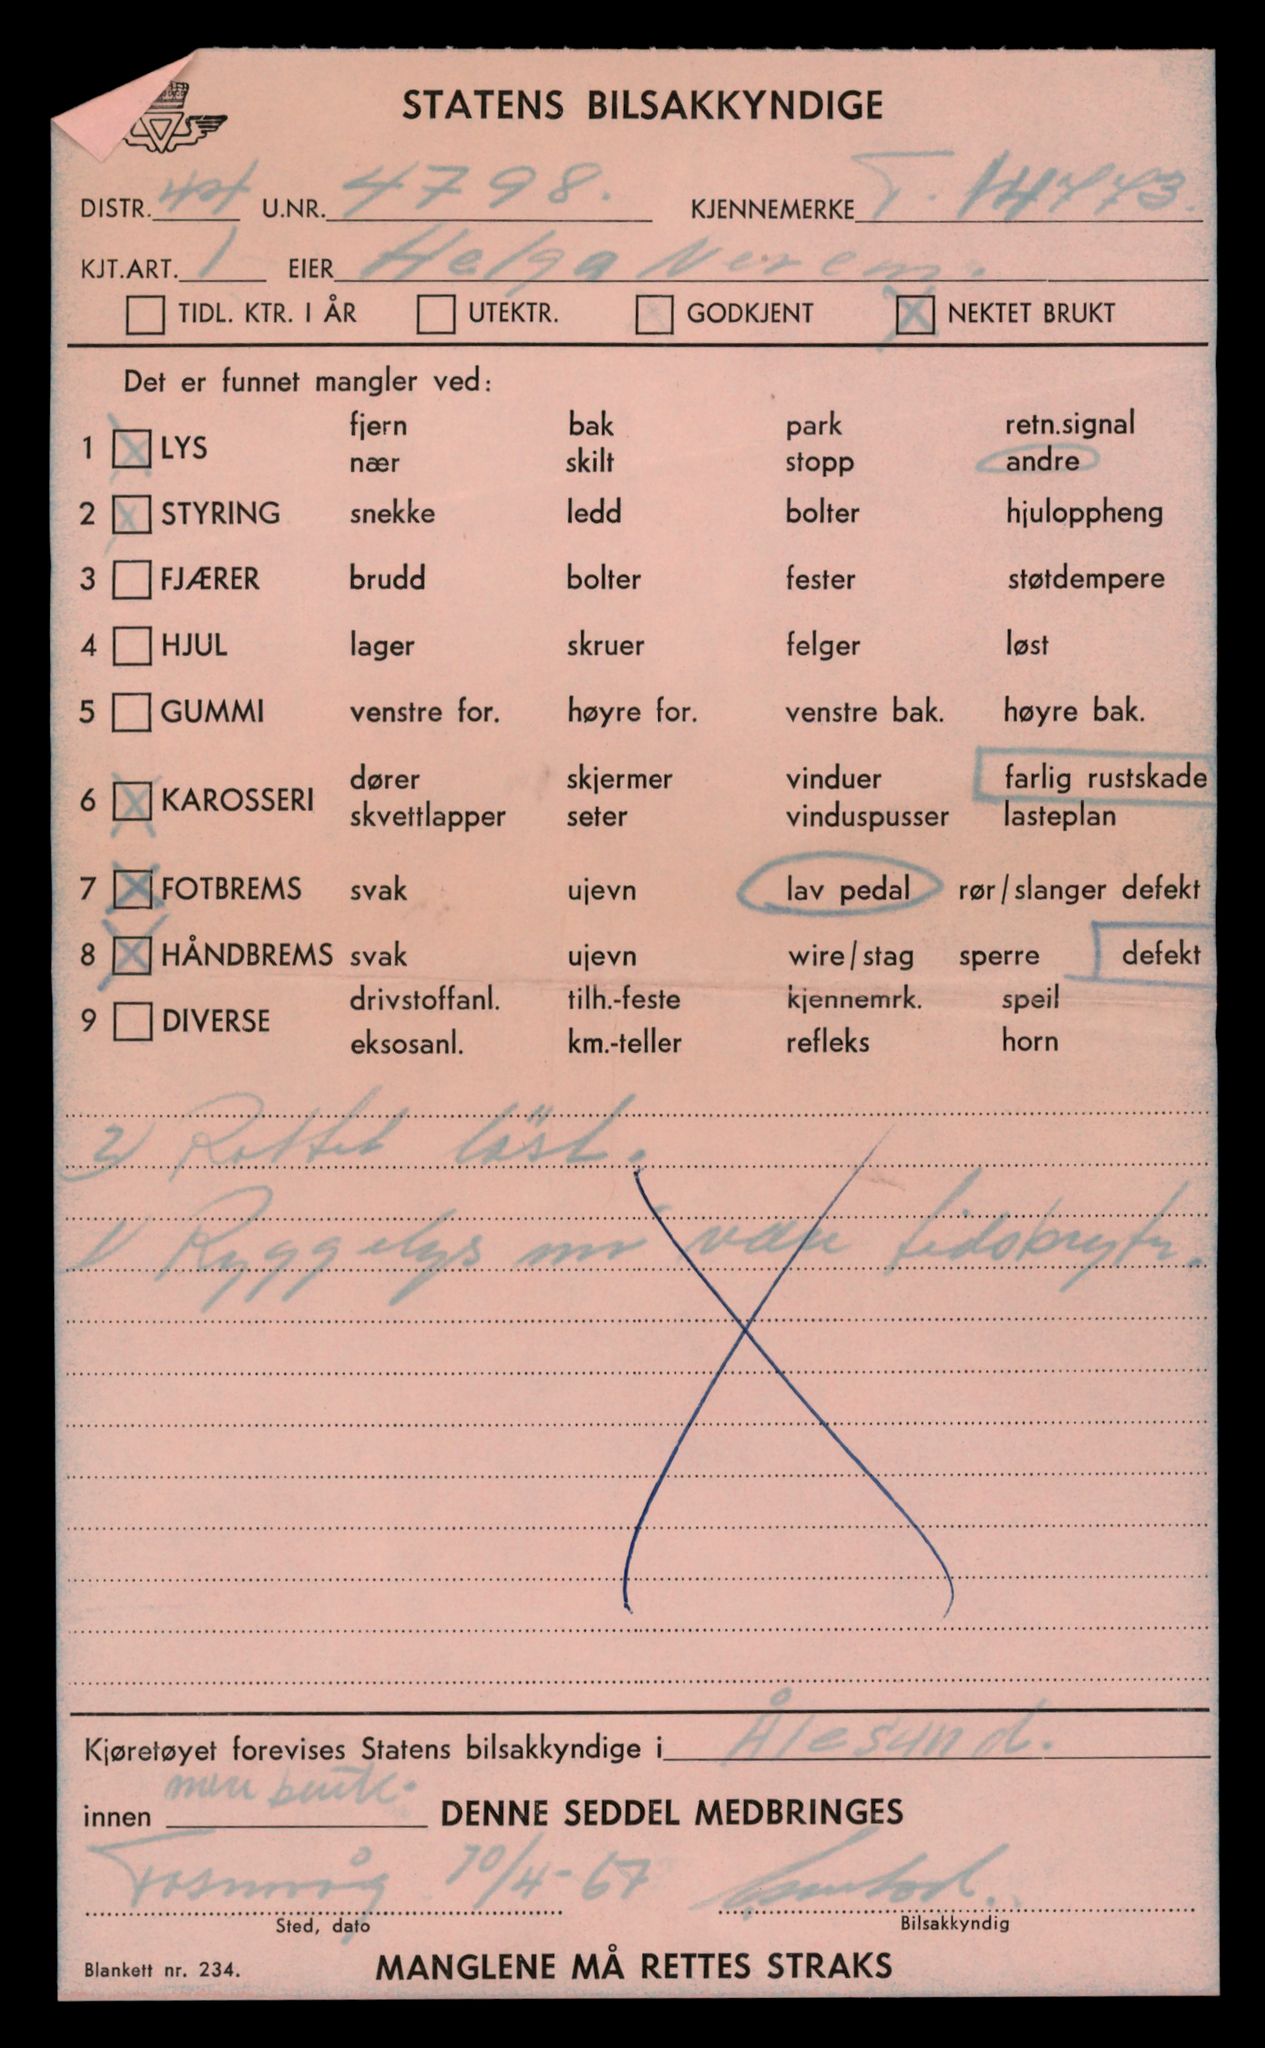 STATENS BILSAKKYNDIGE
DISTR. 44 U.NR. 4798. KJENNEMERKE T. 14773.
KJT.ART. 1 EIER Helga
TIDL. KTR. I ÅR UTEKTR. GODKJENT NEKTET BRUKT
Det er funnet mangler ved:
fjern bak park retn.signal
1 LYS
nær skilt stopp andre
2 STYRING snekke ledd bolter hjuloppheng
3 FJÆRER brudd bolter fester støtdempere
4 HJUL lager skruer felger løst
5 GUMMI venstre for. høyre for. venstre bak. høyre bak.
dører skjermer vinduer farlig rustskade
6 KAROSSERI
skvettlapper seter vinduspusser lasteplan
7 FOTBREMS svak ujevn lav pedal rør/slanger defekt
8 HÅNDBREMS svak ujevn wire/stag sperre defekt
drivstoffanl. tilh.-feste kjennemrk. speil
9 DIVERSE
eksosanl. km.-teller refleks horn
2) Rattet løst.
1) Ryggelys
Kjøretøyet forevises Statens bilsakkyndige i Ålesund.
innen DENNE SEDDEL MEDBRINGES
Fosnavåg /4-67
Sted, dato Bilsakkyndig
Blankett nr. 234. MANGLENE MÅ RETTES STRAKS